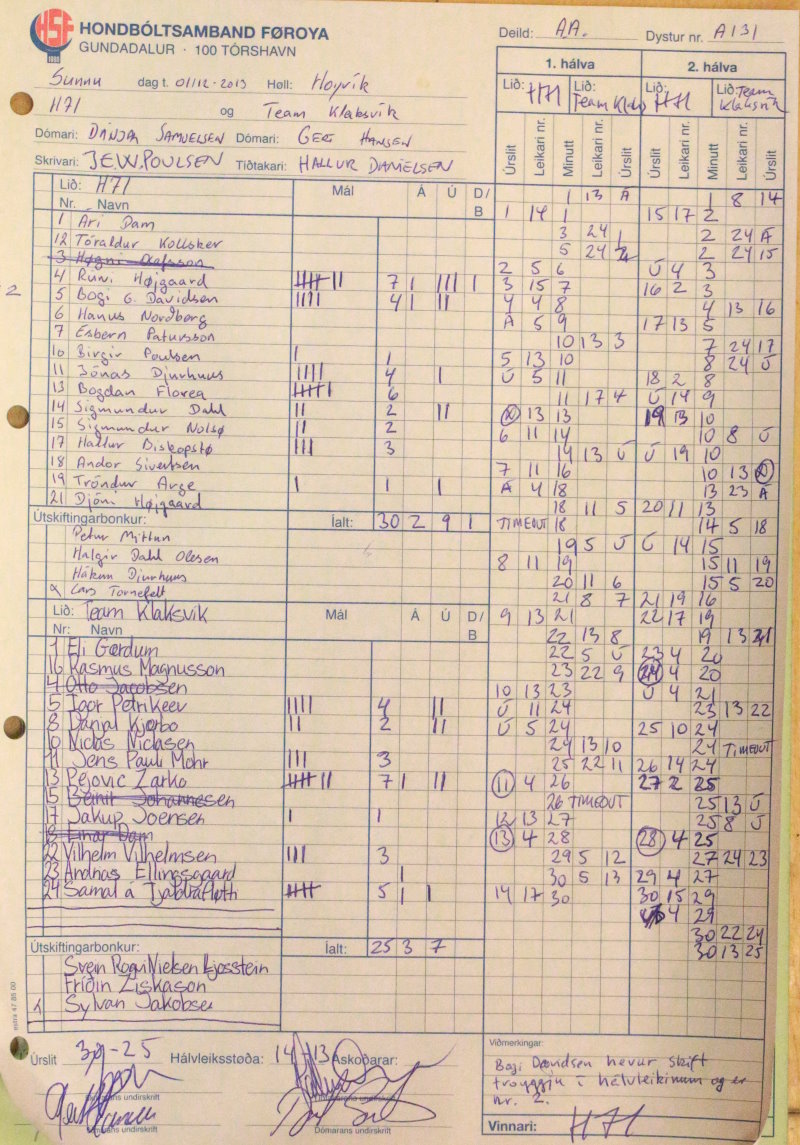 HSF
HONDBÓLTSAMBAND FØROYA
GUNDADALUR · 100 TÓRSHAVN
Deild: AA. Dystur nr. A131
Sunnu dag t. 01/12-2013 Høll: Hoyvík
H71 og Team Klaksvík
Dómari: DÁNJAL SAMUELSEN Dómari: GERT HANSEN
Skrivari: JE.W.POULSEN Tíðtakari: HALLUR DANIELSEN
1. hálva 2. hálva
Lið: H71 Lið: Team Klaks Lið: H71 Lið: Team Klaksvík
Úrslit Leikari nr. Minutt Leikari nr. Úrslit Úrslit Leikari nr. Minutt Leikari nr. Úrslit
Lið: H71 Mál Á Ú D/B
Nr. Navn
1 Ari Dam
12 Tóraldur Kollsker
3 Høgni Olafsson
4 Rúni Højgaard 7 1 III 1
2 5 Bogi G. Davidsen IIII 4 1 II
6 Hanus Nordberg
7 Esbern Patursson
10 Birgir Poulsen I 1
11 Jónas Djurhuus IIII 4 I
13 Bogdan Florea 6
14 Sigmundur Dahl II 2 II
15 Sigmundur Nolsø II 2
17 Hallur Biskopstø III 3
18 Andor Sivertsen
19 Tróndur Arge I 1 I
21 Djóni Højgaard
Útskiftingarbonkur: Íalt: 30 2 9 1
Petur Mittun
Halgir Dahl Olesen
Hákun Djurhuus
Lars Tornefelt
Lið: Team Klaksvík Mál Á Ú D/B
Nr: Navn
1 Eli Gerdum
16 Rasmus Magnusson
4 Otto Jacobsen
5 Igor Petrikeev IIII 4 II
8 Dánjal Kjørbo II 2 II
10 Niclas Niclasen
11 Jens Pauli Mohr III 3
13 Pejovic Zarko 7 1 II
15 Beinir Johannesen
17 Jakup Joensen I 1
18 Einar Dam
22 Vilhelm Vilhelmsen III 3
23 Andrias Ellingsgaard 1
24 Samal á 5 1 I
Útskiftingarbonkur: Íalt: 25 3 7
Svein Rogvi Nielsen Ljosstein
Fríðin Ziskason
Sylvan Jakobsen
1 13 Á
1 14 1
3 24 1
5 24 2
2 5 6
3 15 7
4 4 8
Á 5 9
10 13 3
5 13 10
Ú 5 11
11 17 4
13 13
6 11 14
14 13 Ú
7 11 16
Á 4 18
18 11 5
TIMEOUT 18
19 5 Ú
8 11 19
20 11 6
21 8 7
9 13 21
22 13 8
22 5 Ú
23 22 9
10 13 23
Ú 11 24
Ú 5 24
24 13 10
25 22 11
11 4 26
26 TIMEOUT
12 13 27
13 4 28
29 5 12
30 5 13
14 17 30
1 8 14
15 17 2
2 24 Á
2 24 15
Ú 4 3
16 2 3
4 13 16
17 13 5
7 24 17
8 24 Ú
18 2 8
Ú 14 9
19 13 10
10 8 Ú
Ú 19 10
10 13
13 23 Á
20 11 13
14 5 18
Ú 14 15
15 11 19
15 5 20
21 19 16
22 17 19
19 13 21
23 4 20
24 4 20
Ú 4 21
23 13 22
25 10 24
24 TIMEOUT
26 14 24
27 2 25
25 13 Ú
25 8 Ú
28 4 25
27 24 23
29 4 27
30 15 29
4 29
30 22 24
30 13 25
Úrslit 30-25 Hálvleiksstøða: 14-13 Áskoðarar:
Dómarans undirskrift
Dómarans undirskrift
Dómarans undirskrift
Viðmerkingar:
Bogi Davidsen hevur skift
troyggju í hálvleikinum og er
nr. 2.
Vinnari: H71
estra 47 85 00